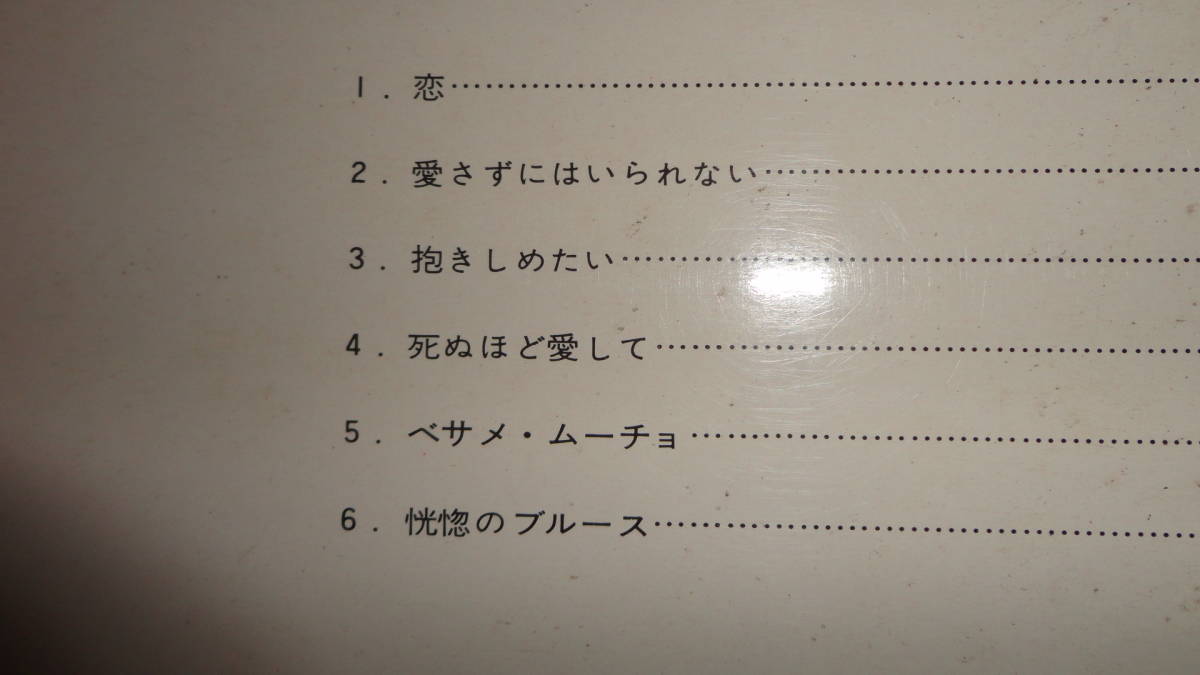 1. 恋……………………………………………
2. 愛さずにはいられない……………………………
3. 抱きしめたい……………………………………
4. 死ぬほど愛して…………………………………
5. ベサメ・ムーチョ………………………………
6. 恍惚のブルース…………………………………